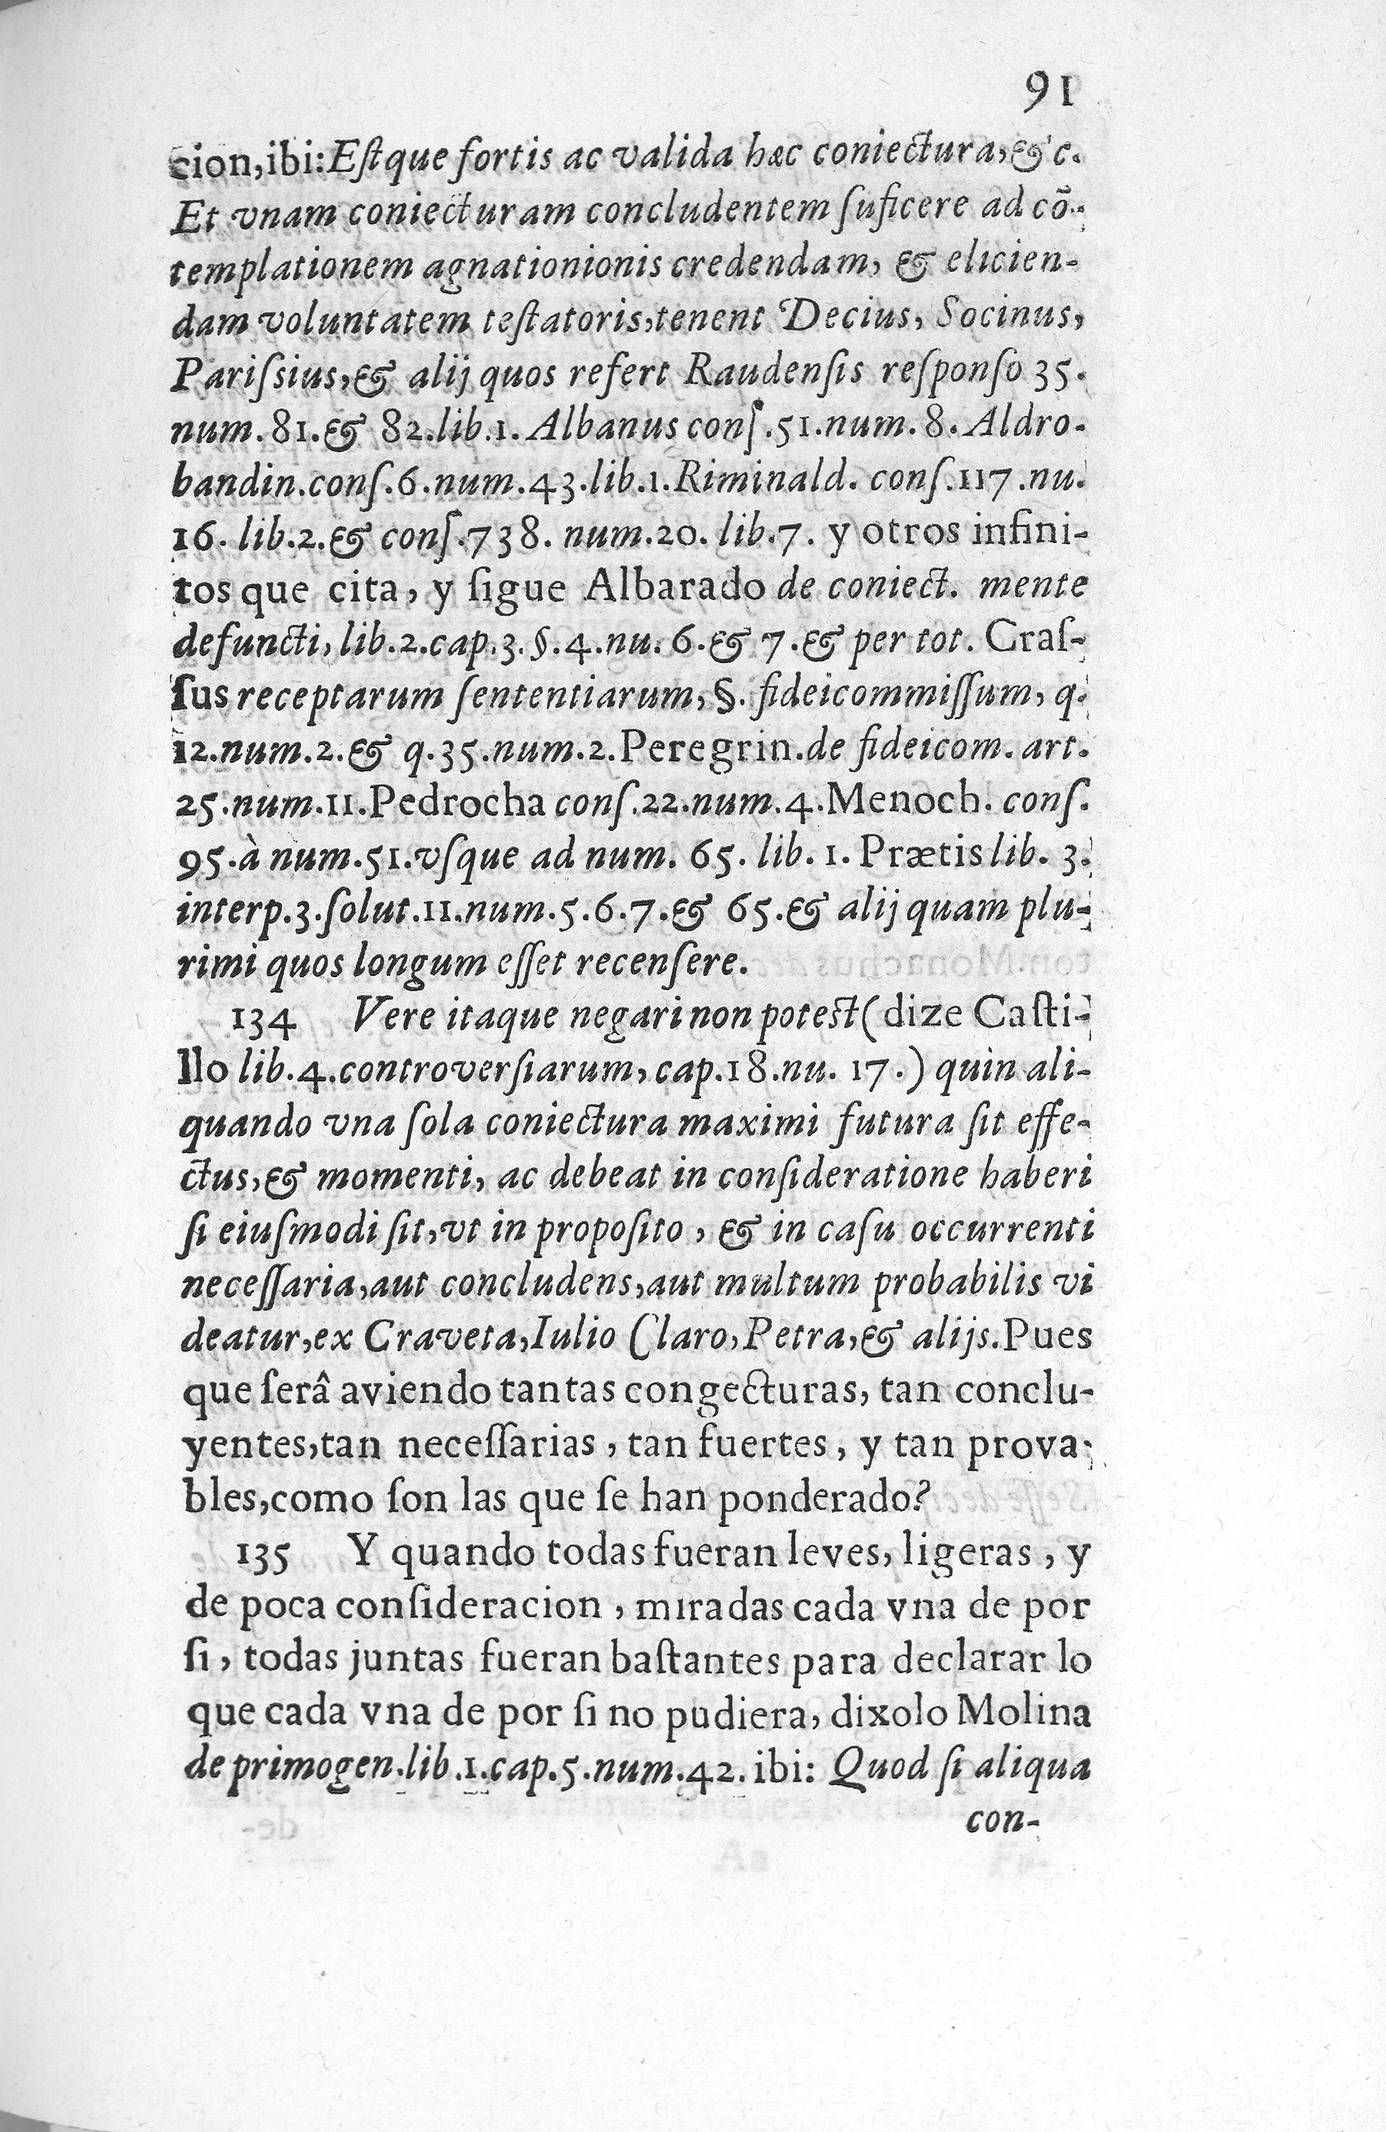 91
cion,ibi:Estque fortis ac valida hæc coniectura,&c.
Et vnam coniecturam concludentem ſuficere ad cō-
templationem agnationionis credendam, & elicien-
dam voluntatem teſtatoris,tenent Decius, Socinus,
Pariſsius,& alij quos refert Raudenſis reſponſo 35.
num.81.& 82.lib.1. Albanus conſ.51.num.8.Aldro-
bandin.conſ.6.num.43.lib.1.Riminald. conſ.117.nu.
16. lib.2.& conſ.738. num.20. lib.7. y otros infini-
tos que cita, y ſigue Albarado de coniect. mente
defuncti, lib.2.cap.3.§.4.nu. 6.& 7.& per tot. Craſ-
ſus receptarum ſententiarum, §. fideicommiſſum, q.
12.num.2.& q.35.num.2.Peregrin.de fideicom. art.
25.num.11.Pedrocha conſ.22.num.4.Menoch. conſ.
95.à num.51.vſque ad num. 65. lib. 1. Prætis lib. 3.
interp.3.ſolut.11.num.5.6.7.& 65.& alij quam plu-
rimi quos longum eſſet recenſere.
134 Vere itaque negari non potest (dize Caſti-
llo lib.4.controverſiarum, cap.18.nu. 17.) quin ali-
quando vna ſola coniectura maximi futura ſit effe-
ctus,& momenti, ac debeat in conſideratione haberi
ſi eiuſmodi ſit,vt in propoſito , & in caſu occurrenti
neceſſaria,aut concludens,aut multum probabilis vi
deatur,ex Craveta,Iulio Claro,Petra,& alijs.Pues
que ſerâ aviendo tantas congecturas, tan conclu-
yentes,tan neceſſarias , tan fuertes , y tan prova-
bles,como ſon las que ſe han ponderado?
135 Y quando todas fueran leves, ligeras , y
de poca conſideracion , miradas cada vna de por
ſi , todas juntas fueran baſtantes para declarar lo
que cada vna de por ſi no pudiera, dixolo Molina
de primogen.lib.1.cap.5.num.42. ibi: Quod ſi aliqua
con-